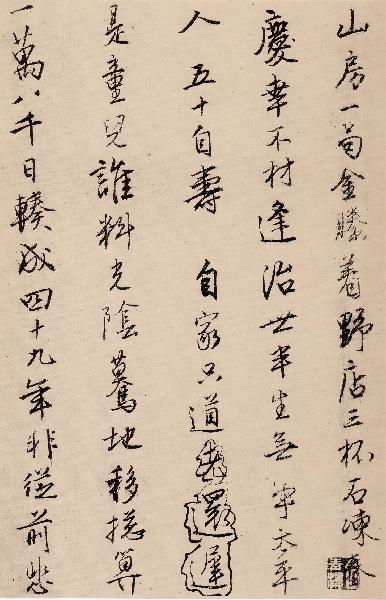 山房一局金縢着野店三杯石凍春
慶幸不材逢治世半生無事太平
人 五十自壽 自家只道還遲
是童兒誰料光陰驀地移揔算
一萬八千日輳成四十九年非從前悲